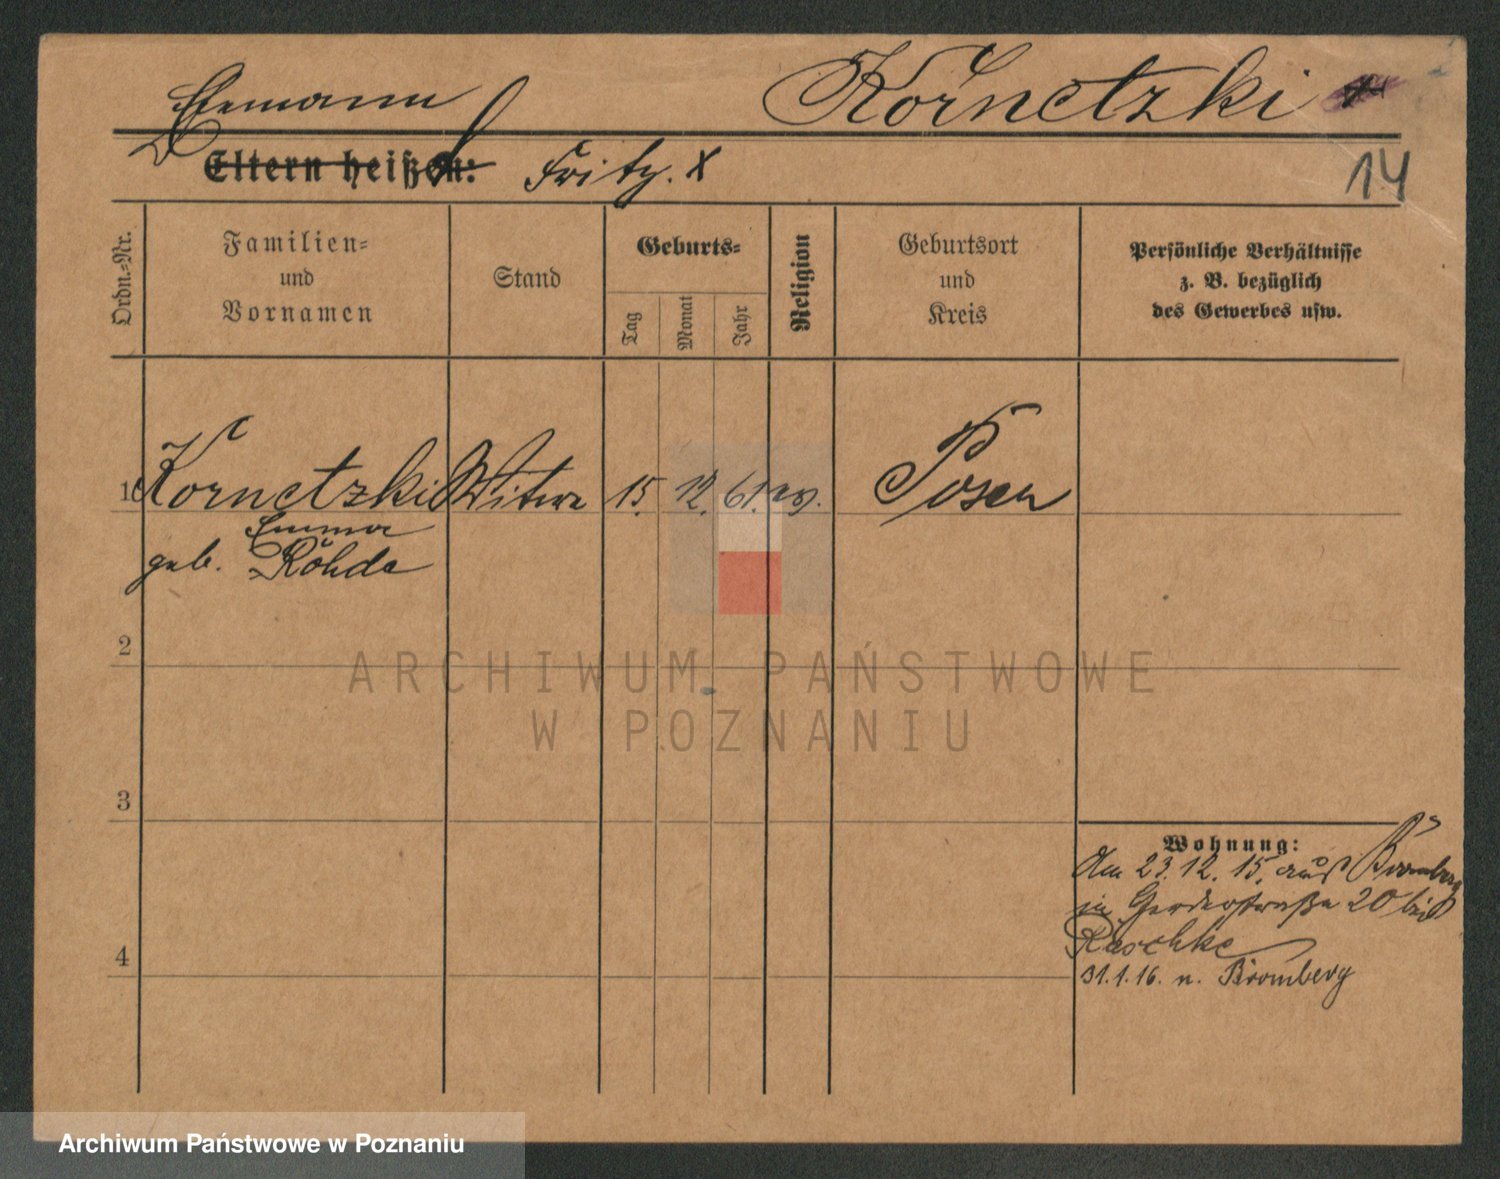 Ehemann
Kornetzki
Eltern heißen: Fritz. X
14
Ordn.=Nr.
Familien=
und
Vornamen
Stand
Geburts=
Tag
Monat
Jahr
Religion
Geburtsort
und
Kreis
Persönliche Verhältnisse
z. B. bezüglich
des Gewerbes usw.
1 Kornetzki Witwe 15. 12. 61. ev. Posen
Emma
geb. Röhde
2
3
4
Wohnung:
Am 23.12.15. aus Bromberg
in Gerderstraße 20 bei
Raschke
31.1.16. n. Bromberg
ARCHIWUM PAŃSTWOWE
W POZNANIU
Archiwum Państwowe w Poznaniu